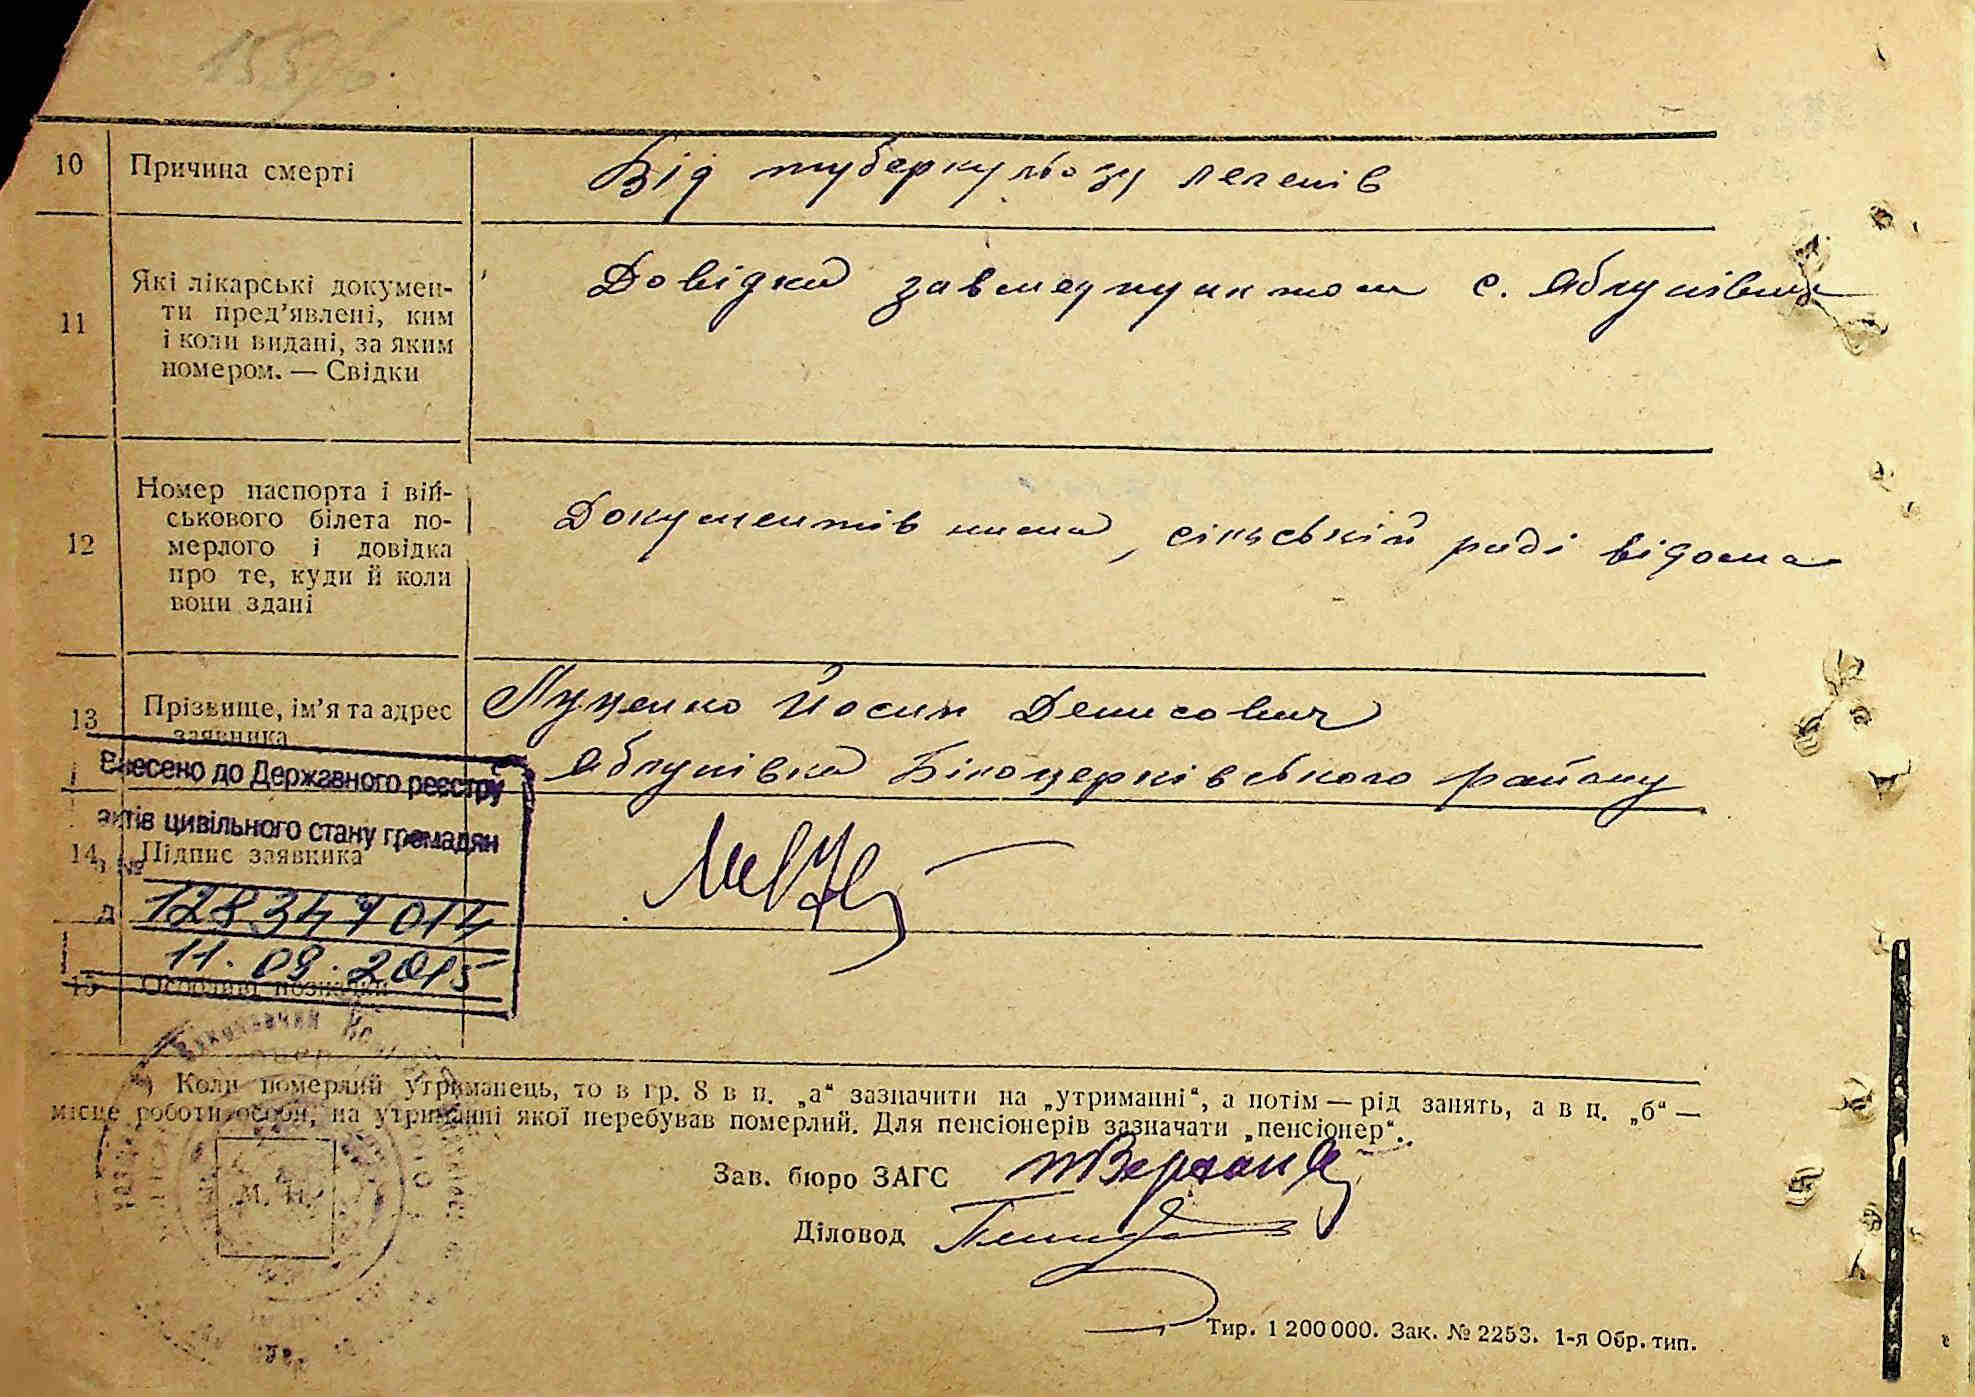 10
Причина смерті
Від туберкульозу легенів
11
Які лікарські докумен-
ти пред’явлені, ким
і коли видані, за яким
номером. — Свідки
Довідка завмедпунктом с. Яблунівка
12
Номер паспорта і вій-
ськового білета по-
мерлого і довідка
про те, куди й коли
вони здані
Документів нема, сільській раді відома
13
Прізвище, ім’я та адрес
заявника
Луценко Йосип Денисович
с. Яблунівка Білоцерківського району
Внесено до Державного реєстру
актів цивільного стану громадян
за №
128347014
11.09.2015
14
Підпис заявника
15
Особливі познаки
*) Коли померлий утриманець, то в гр. 8 в п. „а“ зазначити на „утриманні“, а потім — рід занять, а в п. „б“ —
місце роботи особи, на утриманні якої перебував померлий. Для пенсіонерів зазначати „пенсіонер“.
М. П.
Зав. бюро ЗАГС
Діловод
Тир. 1 200 000. Зак. № 2253. 1-я Обр. тип.